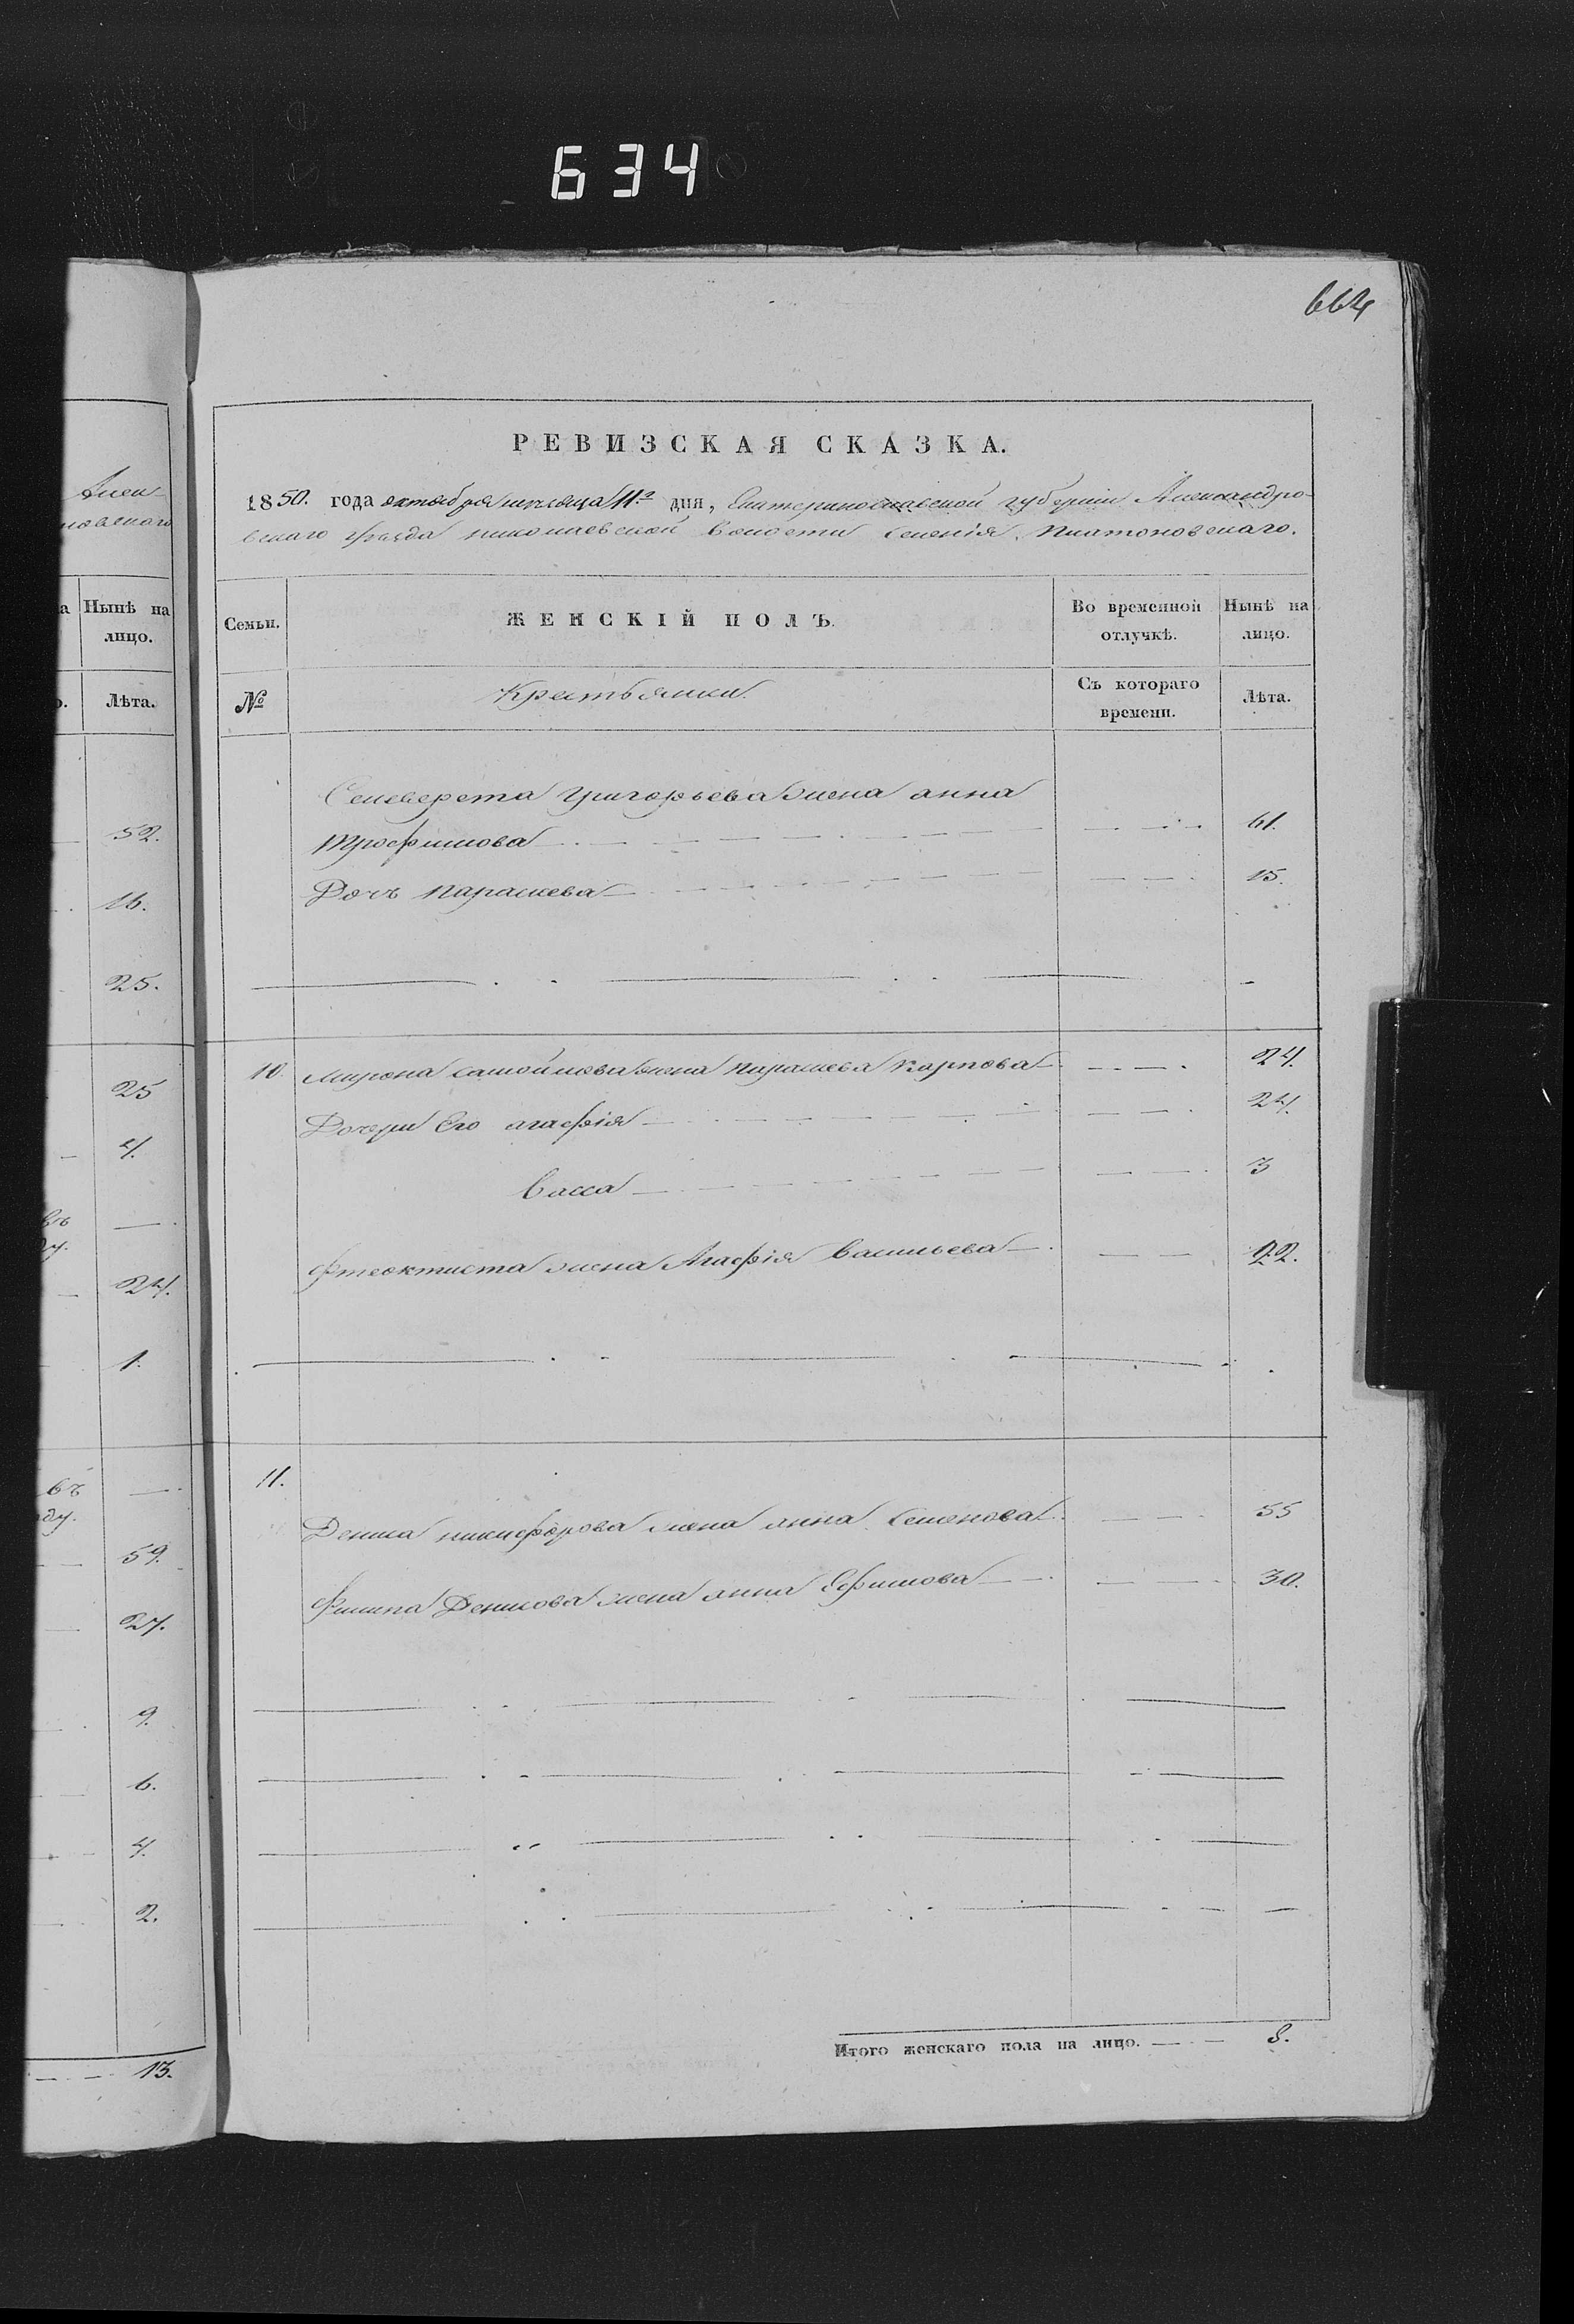 634
664
Алек-
новскаго
а Нынѣ на
лицо.
Лѣта.
52.
16.
25.
25
4.
24.
1.
въ
ду.
59.
27.
9.
6.
4.
2.
13.
РЕВИЗСКАЯ СКАЗКА.
1850. года октября месяца 11го дня, Екатеринославской губерніи Александро-
вскаго уѣзда николаевской волости селенія Платоновскаго.
Семьи.
ЖЕНСКІЙ ПОЛЪ.
Во временной отлучкѣ.
Нынѣ на лицо.
№
Крестьянки.
Съ котораго времени.
Лѣта.
Селеверста Григорьева жена анна
трофимова 61.
Дочь параскева 15.
10. мирона самойлова жена параскева карпова 24.
Дочери Его агафія 24.
васса 3
фтеоктиста жена Агафія васильева 22.
11.
Дениса никифорова жена анна семенова 55
филипа Денисова жена анна Ефимова 30.
Итого женскаго пола на лицо. 8.